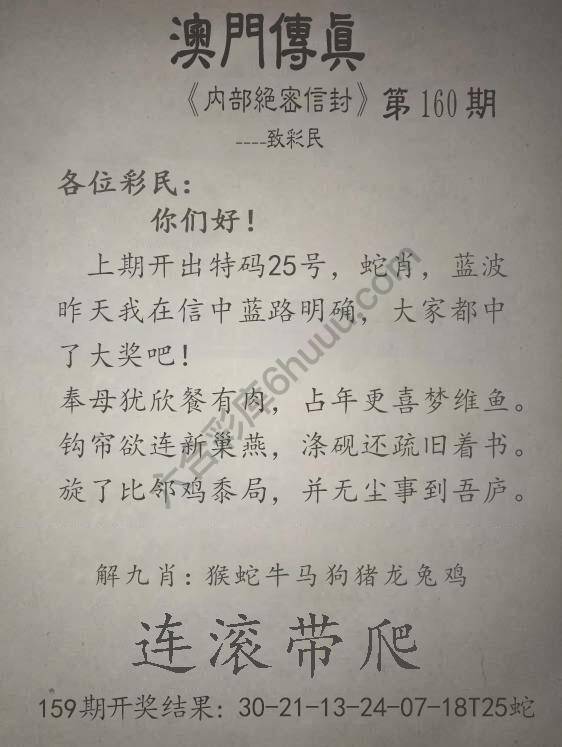 澳門傳眞
《內部絕密信封》第160期
----致彩民
各位彩民：
你们好！
上期开出特码25号，蛇肖，蓝波
昨天我在信中蓝路明确，大家都中
了大奖吧！
奉母犹欣餐有肉，占年更喜梦维鱼。
钩帘欲连新巢燕，涤砚还疏旧着书。
旋了比邻鸡黍局，并无尘事到吾庐。
解九肖：猴蛇牛马狗猪龙兔鸡
连滚带爬
159期开奖结果：30-21-13-24-07-18T25蛇
六合彩库6huuu.com